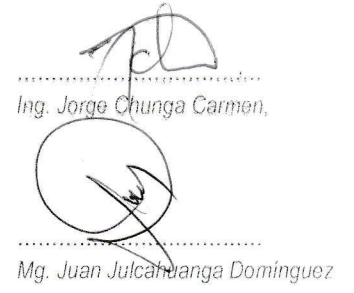 Ing. Jorge Chunga Carmen,
Mg. Juan Julcahuanga Domínguez